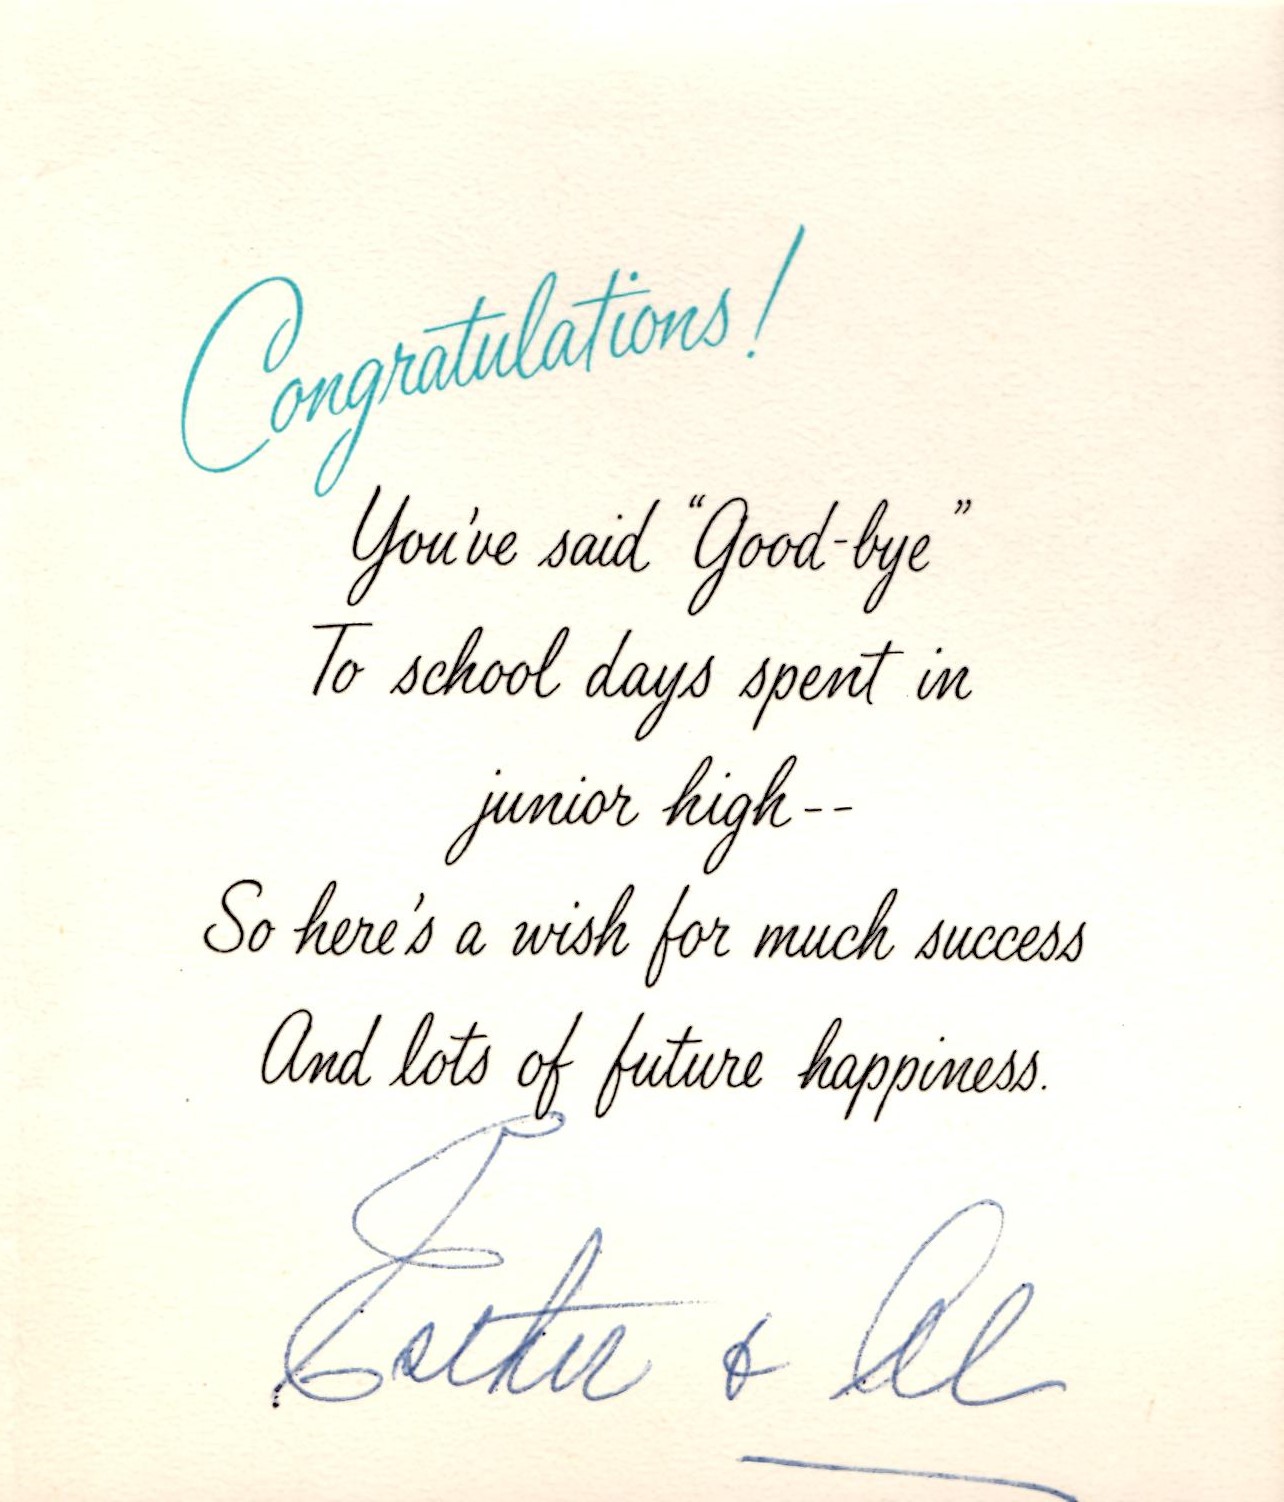 Congratulations!
You've said "Good-bye"
To school days spent in
junior high--
So here's a wish for much success
And lots of future happiness.
Esther & Al